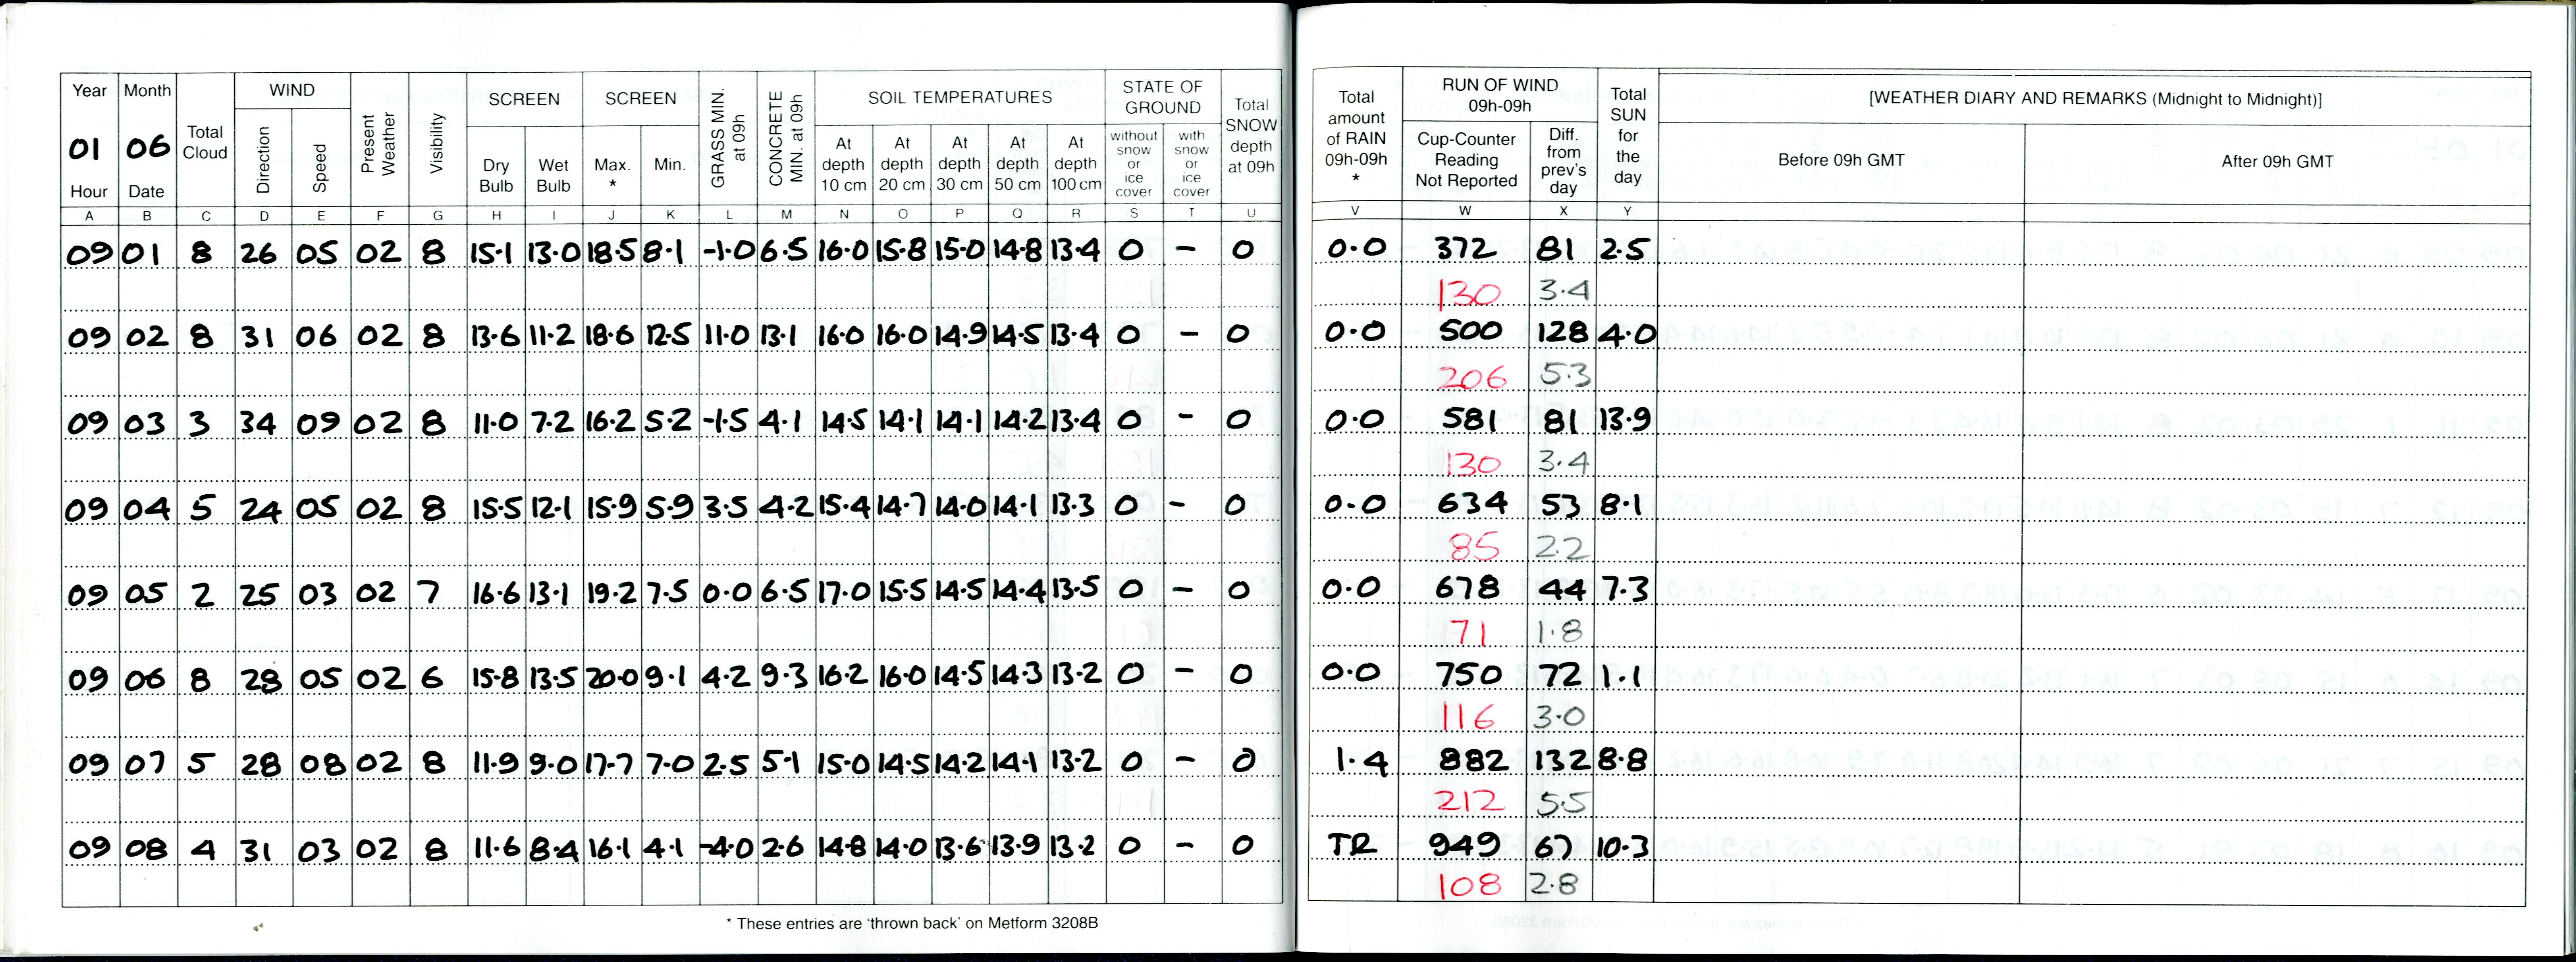 Year Month Total Cloud WIND Direction Speed Present Weather Visibility SCREEN Dry Bulb Wet Bulb SCREEN Max. * Min. GRASS MIN. at 09h CONCRETE MIN. at 09h SOIL TEMPERATURES At depth 10 cm At depth 20 cm At depth 30 cm At depth 50 cm At depth 100 cm STATE OF GROUND without snow or ice cover with snow or ice cover Total SNOW depth at 09h Total amount of RAIN 09h-09h * RUN OF WIND 09h-09h Cup-Counter Reading Not Reported Diff. from prev's day Total SUN for the day [WEATHER DIARY AND REMARKS (Midnight to Midnight)]
01 06
Hour Date Before 09h GMT After 09h GMT
A B C D E F G H I J K L M N O P Q R S T U V W X Y
09 01 8 26 05 02 8 15.1 13.0 18.5 8.1 -1.0 6.5 16.0 15.8 15.0 14.8 13.4 0 - 0 0.0 372 81 2.5
130 3.4
09 02 8 31 06 02 8 13.6 11.2 18.6 12.5 11.0 13.1 16.0 16.0 14.9 14.5 13.4 0 - 0 0.0 500 128 4.0
206 5.3
09 03 3 34 09 02 8 11.0 7.2 16.2 5.2 -1.5 4.1 14.5 14.1 14.1 14.2 13.4 0 - 0 0.0 581 81 13.9
130 3.4
09 04 5 24 05 02 8 15.5 12.1 15.9 5.9 3.5 4.2 15.4 14.7 14.0 14.1 13.3 0 - 0 0.0 634 53 8.1
85 2.2
09 05 2 25 03 02 7 16.6 13.1 19.2 7.5 0.0 6.5 17.0 15.5 14.5 14.4 13.5 0 - 0 0.0 678 44 7.3
71 1.8
09 06 8 28 05 02 6 15.8 13.5 20.0 9.1 4.2 9.3 16.2 16.0 14.5 14.3 13.2 0 - 0 0.0 750 72 1.1
116 3.0
09 07 5 28 08 02 8 11.9 9.0 17.7 7.0 2.5 5.1 15.0 14.5 14.2 14.1 13.2 0 - 0 1.4 882 132 8.8
212 5.5
09 08 4 31 03 02 8 11.6 8.4 16.1 4.1 -4.0 2.6 14.8 14.0 13.6 13.9 13.2 0 - 0 TR 949 67 10.3
108 2.8
* These entries are 'thrown back' on Metform 3208B